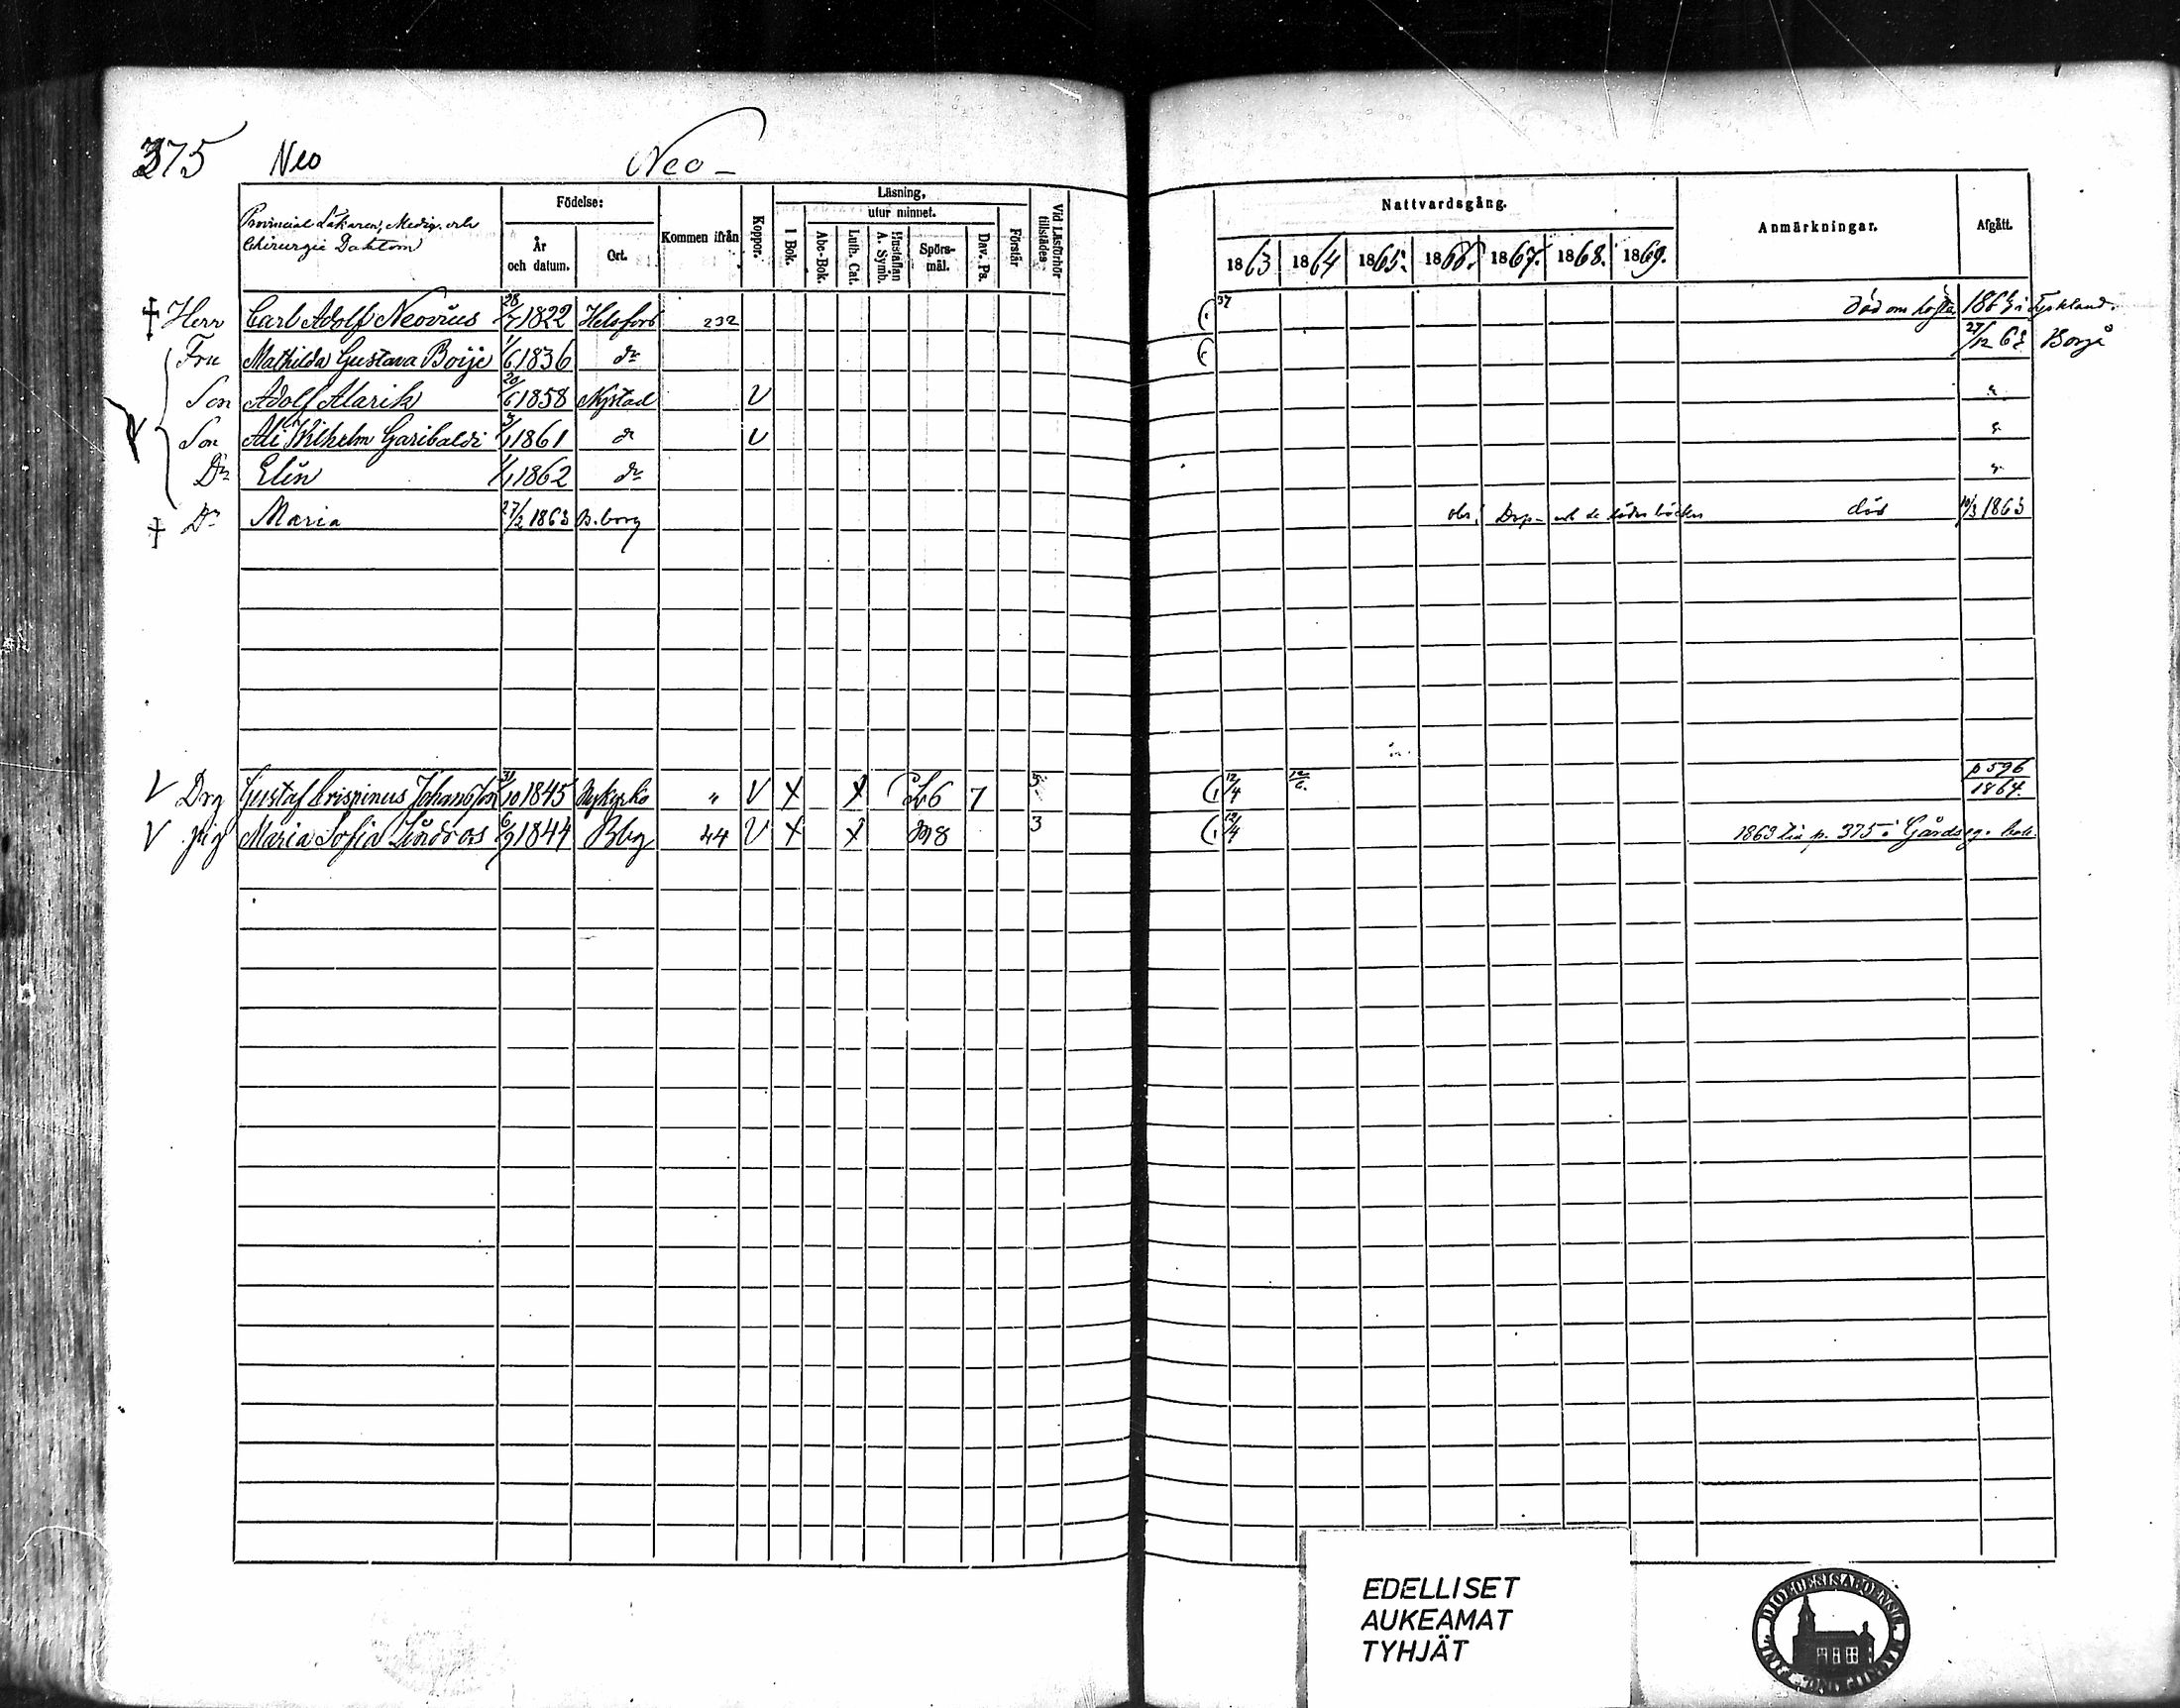 375 Neo Neo
Provincial Läkaren, Medic. och
Chirurgie Doktorn
Födelse:
År
och datum.
Ort.
Kommen ifrån
Koppor.
Läsning,
utur minnet.
I Bok.
Abc-Bok.
Luth. Cat.
Hustaflan
A. Symb.
Spörs-
mål.
Dav. Ps.
Förstår
Vid Läsförhör
tillstädes
Nattvardsgång.
1863 1864 1865. 1866. 1867. 1868. 1869.
Anmärkningar.
Afgått.
† Herr Carl Adolf Neovius 28/7 1822 Helsfors 232 37 död om hösten 1863 i Tyskland.
Fru Mathilda Gustava Boije 1/6 1836 do 27/12 63 Borgå
Son Adolf Alarik 20/6 1858 Nystad V "
Son Ali Wilhelm Garibaldi 3/1 1861 do V "
Dr Elin 1/1 1862 do "
† Dr Maria 27/2 1863 B.borg obs! Dop- och de dödas böcker död 10/3 1863
V Drg Gustaf Crispinus Johansson 31/10 1845 Nykyrko " V X X 26 7 5 12/4 12/6 p 596
1864.
V pig Maria Sofia Lindroos 6/9 1844 Bbg 44 V X X 8 3 12/4 1863 till p. 375 i Gårdseg. bok
EDELLISET
AUKEAMAT
TYHJÄT